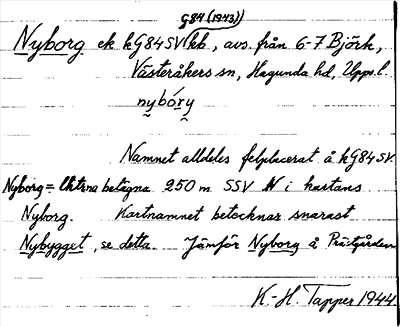 G84 (1943)
Nyborg ek kG84SV kb., avs. från 6-7 Björk,
Västeråkers sn, Hagunda hd, Upps. l.
nybóry
Namnet alldeles felplacerat å kG84SV.
Nyborg = belägna 250 m SSV N i kartans
Nyborg. Kartnamnet betecknar snarast
Nybygget, se detta. Jämför Nyborg å Prästgården
K.-H. Tapper 1944